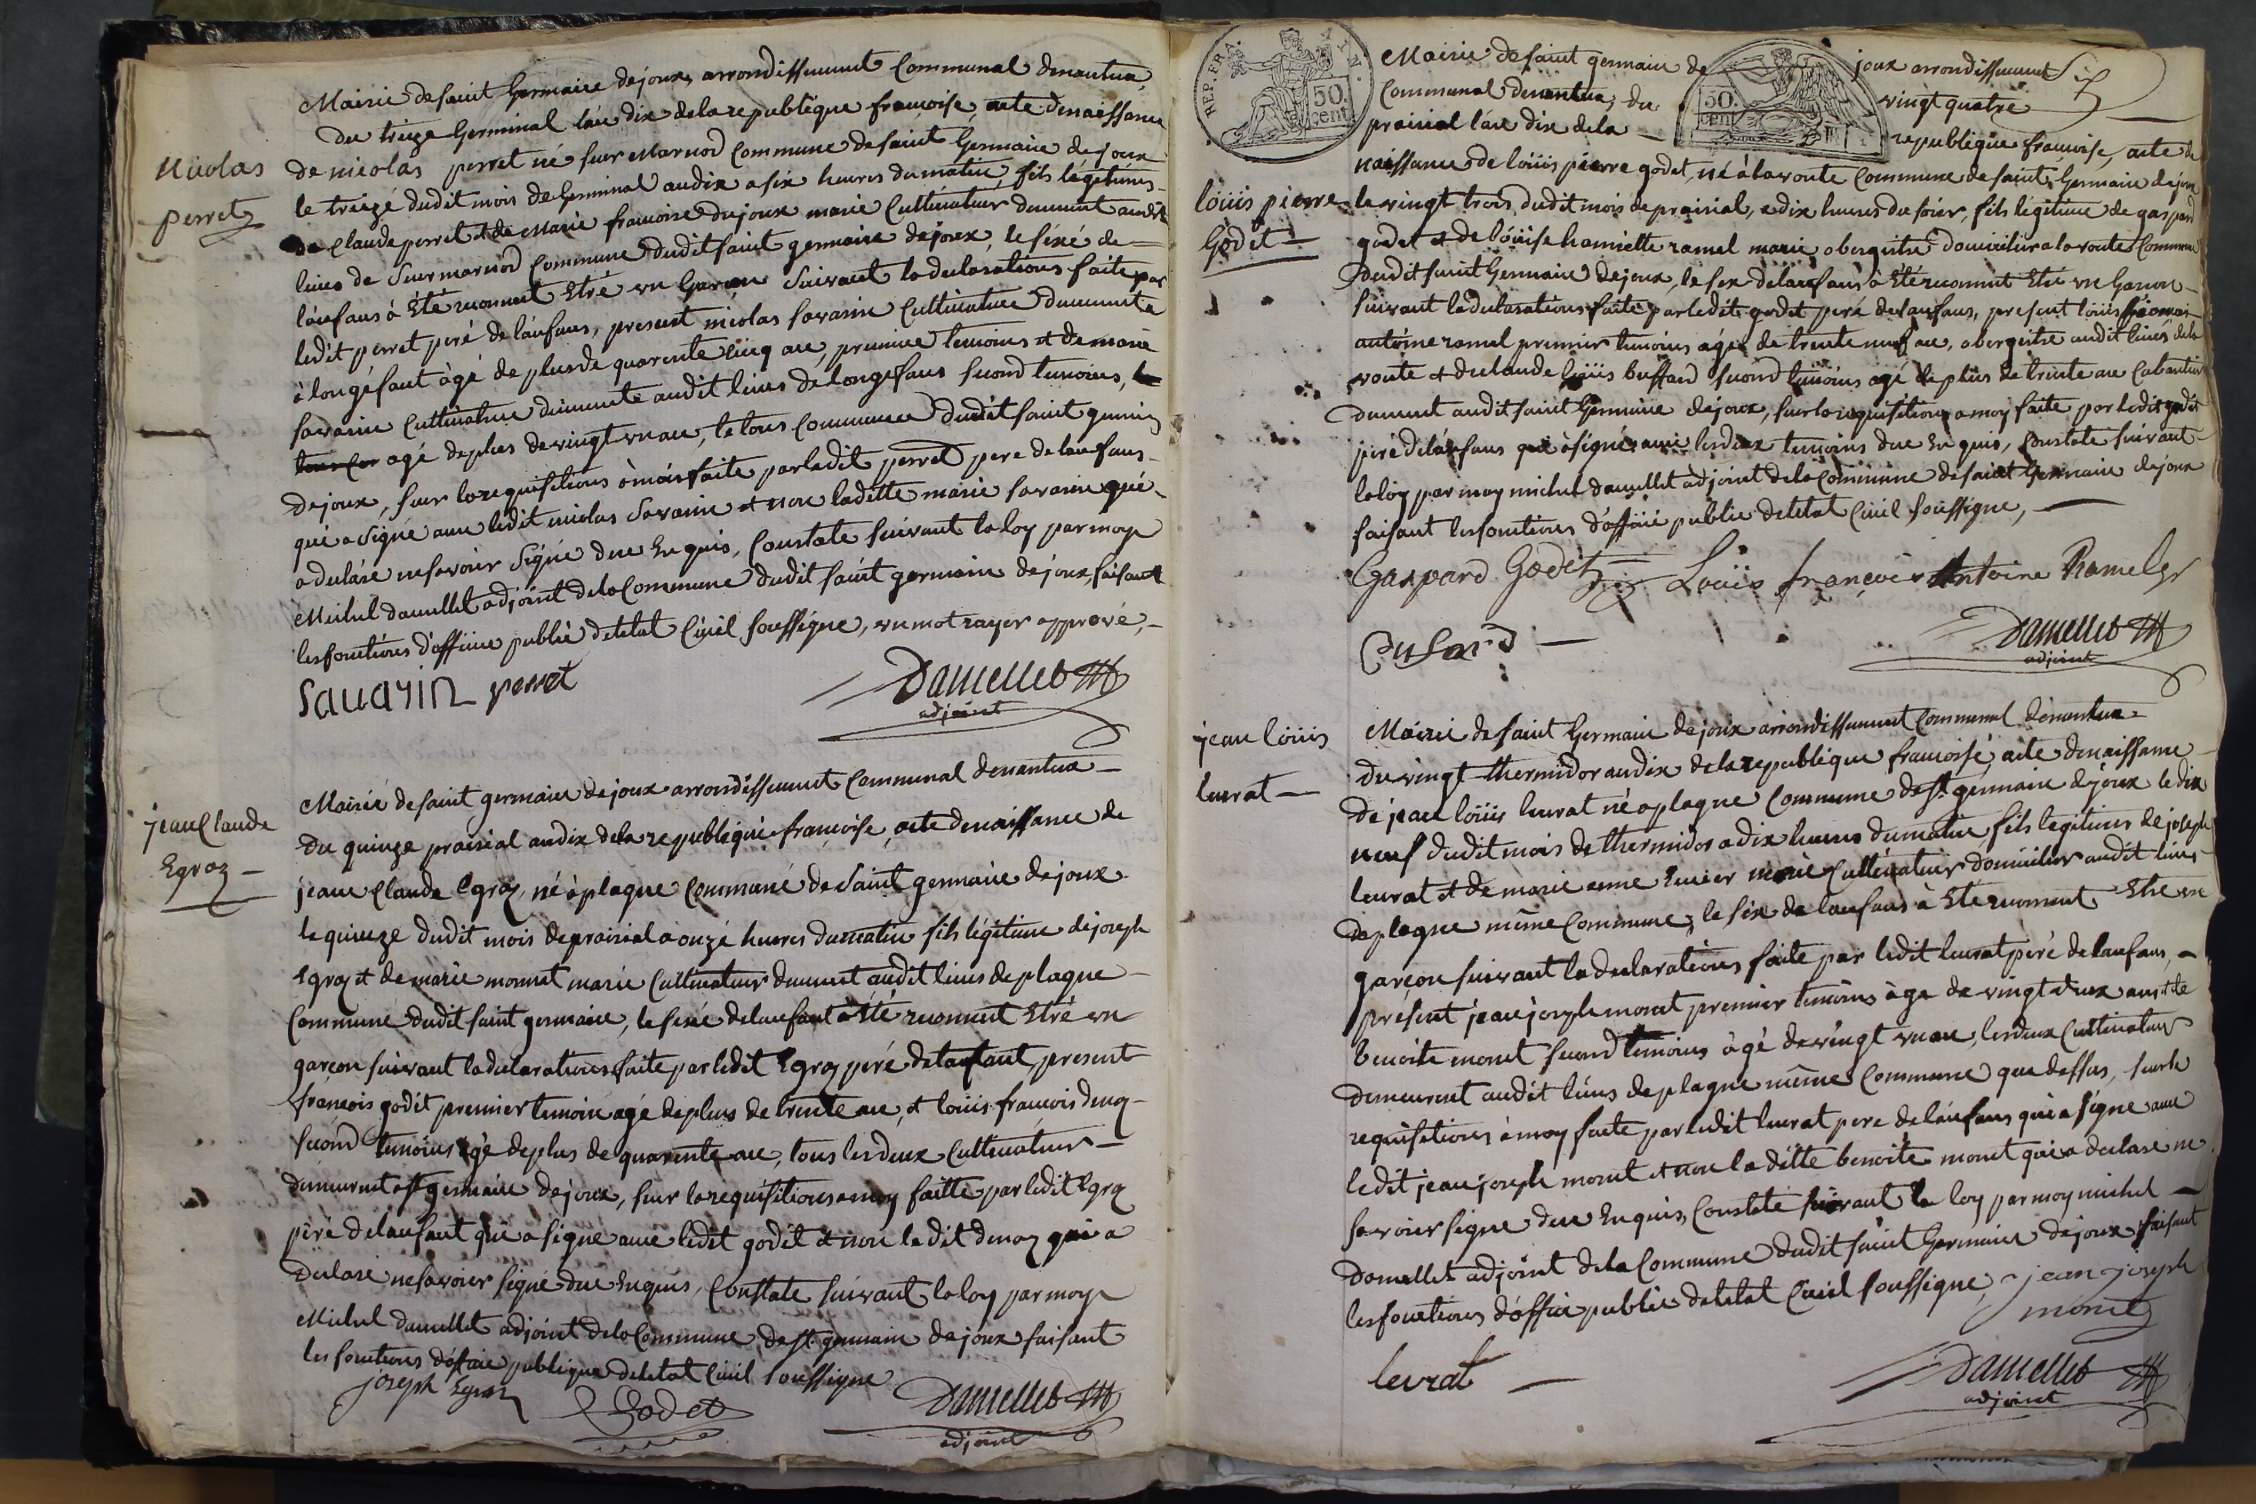 Mairie de saint Germain de joux, arrondissement Communal de nantua,
Du treize Germinal l'an dix de la republique francoise, acte de naissance
Nicolas
perret
de nicolas perret né sur Marnod Commune de saint Germain de joux
le treize dudit mois de Germinal an dix a six heures du matin, fils légitimes
de Claude perret et de Marie francoise dujoux marié Cultivateur demeurt audit
lieus de Surmarnod Commune dudit saint germain de joux, le séxé de
l'enfans à été reconnut Etré un Garçon suivant la declarations faite par
ledit perret peré de l'enfans, present nicolas savarin Cultivateur demeurente
à longéfant àgé de plus de quarente cinq ans, premier temoins et de marie
savarin Cultivature demeurente audit lieus de longefans second temoins,
agé de plus de vingt un an, le tous Commune dudit saint germin
de joux, sur la requisitions à moi faite par ledit perret pere de l'enfans
qui a signé avec ledit nicolas Savarin et non ladette marie savarin qui
a déclaré ne savoir Signé due Enquis, Constate suivant la loy par moy
Michel damellet adjoint de la Commune dudit saint germain de joux, faisant
les fonctions d'officie public de l'etat Civil soussigne, un mot rayer apprové,
savarin perret Damellet
adjoint
jean Claude
Egraz
Mairie de saint germain de joux arrondissement Communal de nantua
Du quinze prairial an dix de la republique francoise, acte de naissance de
jean Claude Egraz, né à plagne Communé de Saint germain de joux
le quinze dudit mois de prairial a onzé heures du matin fils légitime de joseph
Egraz et de marie monnet marié Cultivateur demeurt audit lieus de plagne
Communé dudit saint germain, le sexé de l'enfant à été reconnut Etré un
garçon suivant la declarations faite par ledit Egraz péré de l'enfant, present
francois godet premier temoin agé de plus de trente an, et loüis francois
second temoins àgé de plus de quarente an, tous les deux Cultivateur
demeurent a st germain de joux, sur la requisitions a moy faitte par ledit Egraz
péré de l'enfant qui a signe avec ledit godet et non le dit qui a
declaré ne savoir signé due Enquis, Constate suivant la loy par moy
Michel damellet adjoint de la Commune de st. germain de joux faisant
les fonctions d'officie publique de l'etat Civil soussigne
joseph Egraz Godet Damellet
adjoint
REP. FRA. 50 cent
50 cent
Mairie de saint germain de joux arrondissement
Communal de nantua, du vingt quatre
prairial l'an dix de la republique francoise, acte de
naissance de loüis pierre godet, né à la voute Commune de saint Germain de joux
loüis pierre
Godet
le vingt trois dudit mois de prairial, a dix heures du soir, fils légitime de gaspard
godet et de loüise hamiette ramel marié obergiste domicilier a la voute Commune
dudit saint Germain de joux, le sex de l'enfans à été reconnut Etre un Garcon
suivant la declarations faite par ledit godet peré de l'enfans, present loüis francois
antoine ramel premier temoins agé de trente neuf an, obergiste audit lieus de la
voute et de claude loüis buffard second temoins agé de plus de trente an Cabartier
demeurt audit saint Germain de joux, sur la requisitions a moy faite par ledit godet
péré de l'enfans qui à signé avec les deux temoins due Enquis, Constate suivant
la loy par moy michel damellet adjoint de la Commune de saint Germain de joux
faisant les fonctions d'officié public de l'etat Civil soussigne,
Gaspard Godet Loüis françois Antoine Ramel
Damellet
adjoint
jean loüis
levrat
Mairie de saint Germain de joux arrondissement Communal de nantua
Du vingt thermidor an dix de la republique francoisé, acte de naissance
de jean loüis levrat né a plagne Commune de st. germain de joux le dix
neuf dudit mois de thermidor a dix heures du matin, fils legitimes de joseph
levrat et de marie anne marié Cultivateur domicilier audit lieus
de plagne même Commune, le séx de l'enfans à été reconnut Etre un
garçon suivant la declarations faite par ledit levrat peré de l'enfans,
présent jean joseph monet premier temoins àgé de vingt deux ans et de
benoite monet second temoins àgé de vingt un an, les deux Cultivateur
demeurent audit lieus de plagne même Commune que dessus, sur la
requisitions à moy faite par ledit levrat pere de l'enfans qui a signe avec
ledit jean joseph monet et non la ditte benoite monet qui a declaré ne
savoir signe due Enquis, Constate suivant la loy par moy michel
damellet adjoint de la Commune dudit saint Germain de joux faisant
les fonctions d'officie public de l'etat Civil soussigne, jean joseph
monet
levrat Damellet
adjoint